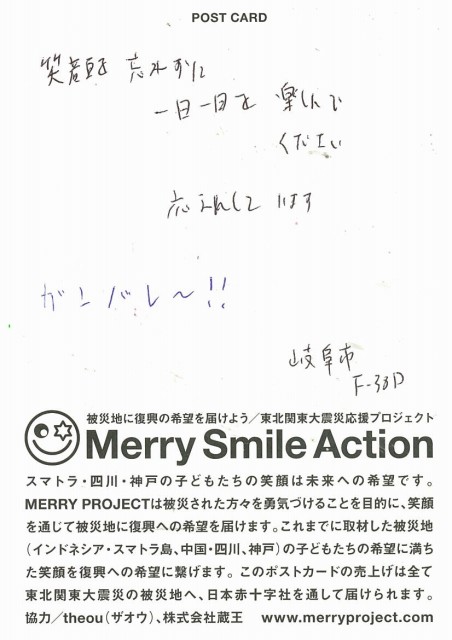 POST CARD
笑顔を 忘れずに
一日一日を 楽しんで
ください
応えんしています
ガンバレ〜!!
岐阜市
F-38D
被災地に復興の希望を届けよう／東北関東大震災応援プロジェクト
Merry Smile Action
スマトラ・四川・神戸の子どもたちの笑顔は未来への希望です。
MERRY PROJECTは被災された方々を勇気づけることを目的に、笑顔
を通じて被災地に復興への希望を届けます。これまでに取材した被災地
（インドネシア・スマトラ島、中国・四川、神戸）の子どもたちの希望に満ち
た笑顔を復興への希望に繋げます。このポストカードの売上げは全て
東北関東大震災の被災地へ、日本赤十字社を通して届けられます。
協力／theou（ザオウ）、株式会社蔵王 www.merryproject.com